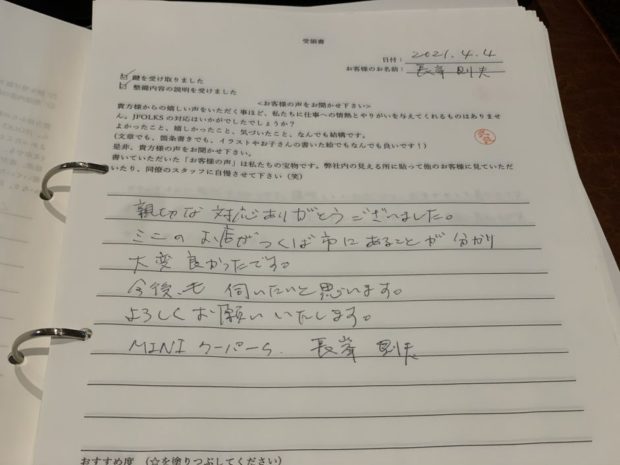 受領書
日付: 2021.4.4
お客様のお名前: 長峯 則夫
☑ 鍵を受け取りました
☑ 整備内容の説明を受けました
<お客様の声をお聞かせ下さい>
貴方様からの嬉しい声をいただく事ほど、私たちに仕事への情熱とやりがいを与えてくれるものはありませ
ん。JFOLKSの対応はいかがでしたでしょうか?
よかったこと、嬉しかったこと、気づいたこと、なんでも結構です。
(文章でも、箇条書きでも、イラストやお子さんの書いた絵でもなんでも良いです!)
是非、貴方様の声をお聞かせ下さい。
書いていただいた「お客様の声」は私たちの宝物です。弊社内の見える所に貼って他のお客様に見ていただ
いたり、同僚のスタッフに自慢させて下さい(笑)
親切な対応ありがとうございました。
ミニのお店がつくば市にあることが分かり
大変良かったです。
今後も伺いたいと思います。
よろしくお願いいたします。
MINI クーパーS. 長峯 則夫
おすすめ度 (☆を塗りつぶしてください)